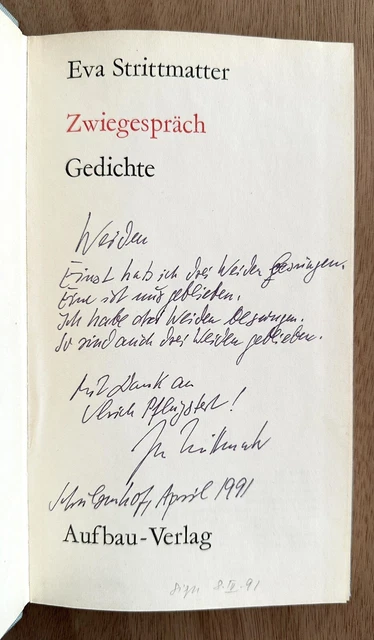 Eva Strittmatter
Zwiegespräch
Gedichte
Weiden
Einst hab ich drei Weiden besungen.
Eine ist nur geblieben.
Ich habe drei Weiden besungen.
So sind auch drei Weiden geblieben.
Mit Dank an
Ulrich !
Schulzenhof, April 1991
Aufbau-Verlag
sign 8. IV. 91